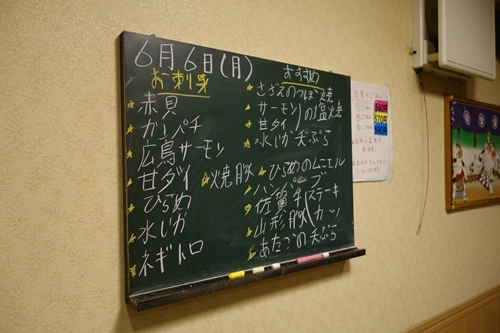 6月6日(月)
お刺身
赤貝
カンパチ
広島サーモン
甘ダイ
ひらめ
水いか
ネギトロ
焼豚
おすすめ
さざえのつぼ焼
サーモン
甘ダイ
の塩焼
水いか天ぷら
ひらめのムニエル
佐賀牛ステーキ
山形豚カツ
あたごの天ぷら